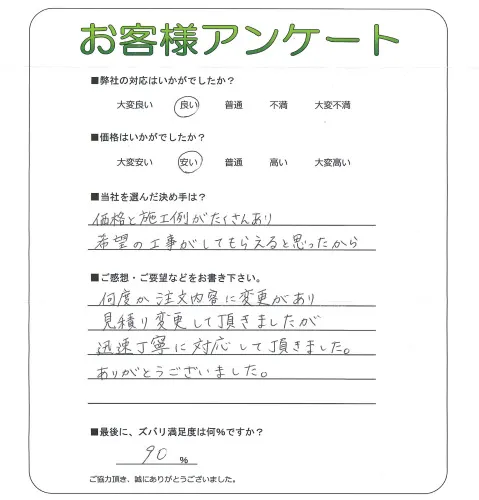 お客様アンケート
■弊社の対応はいかがでしたか？
大変良い 良い 普通 不満 大変不満
■価格はいかがでしたか？
大変安い 安い 普通 高い 大変高い
■当社を選んだ決め手は？
価格と施工例がたくさんあり
希望の工事がしてもらえると思ったから
■ご感想・ご要望などをお書き下さい。
何度か注文内容に変更があり
見積り変更して頂きましたが
迅速丁寧に対応して頂きました。
ありがとうございました。
■最後に、ズバリ満足度は何％ですか？
90 %
ご協力頂き、誠にありがとうございました。